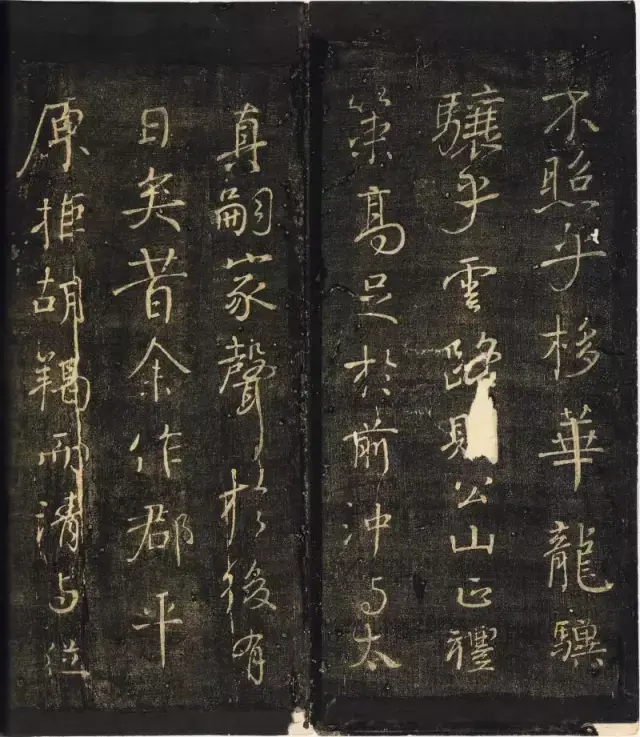 不照乎栘華龍驥
驤乎雲路則公山正禮
策高足於前沖与太
真嗣家聲於後有
日矣昔余作郡平
原拒胡羯而清与從